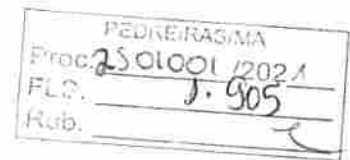 PEDREIRAS/MA
Proc. 2501001 /2021
FLS. 1. 905
Rub.